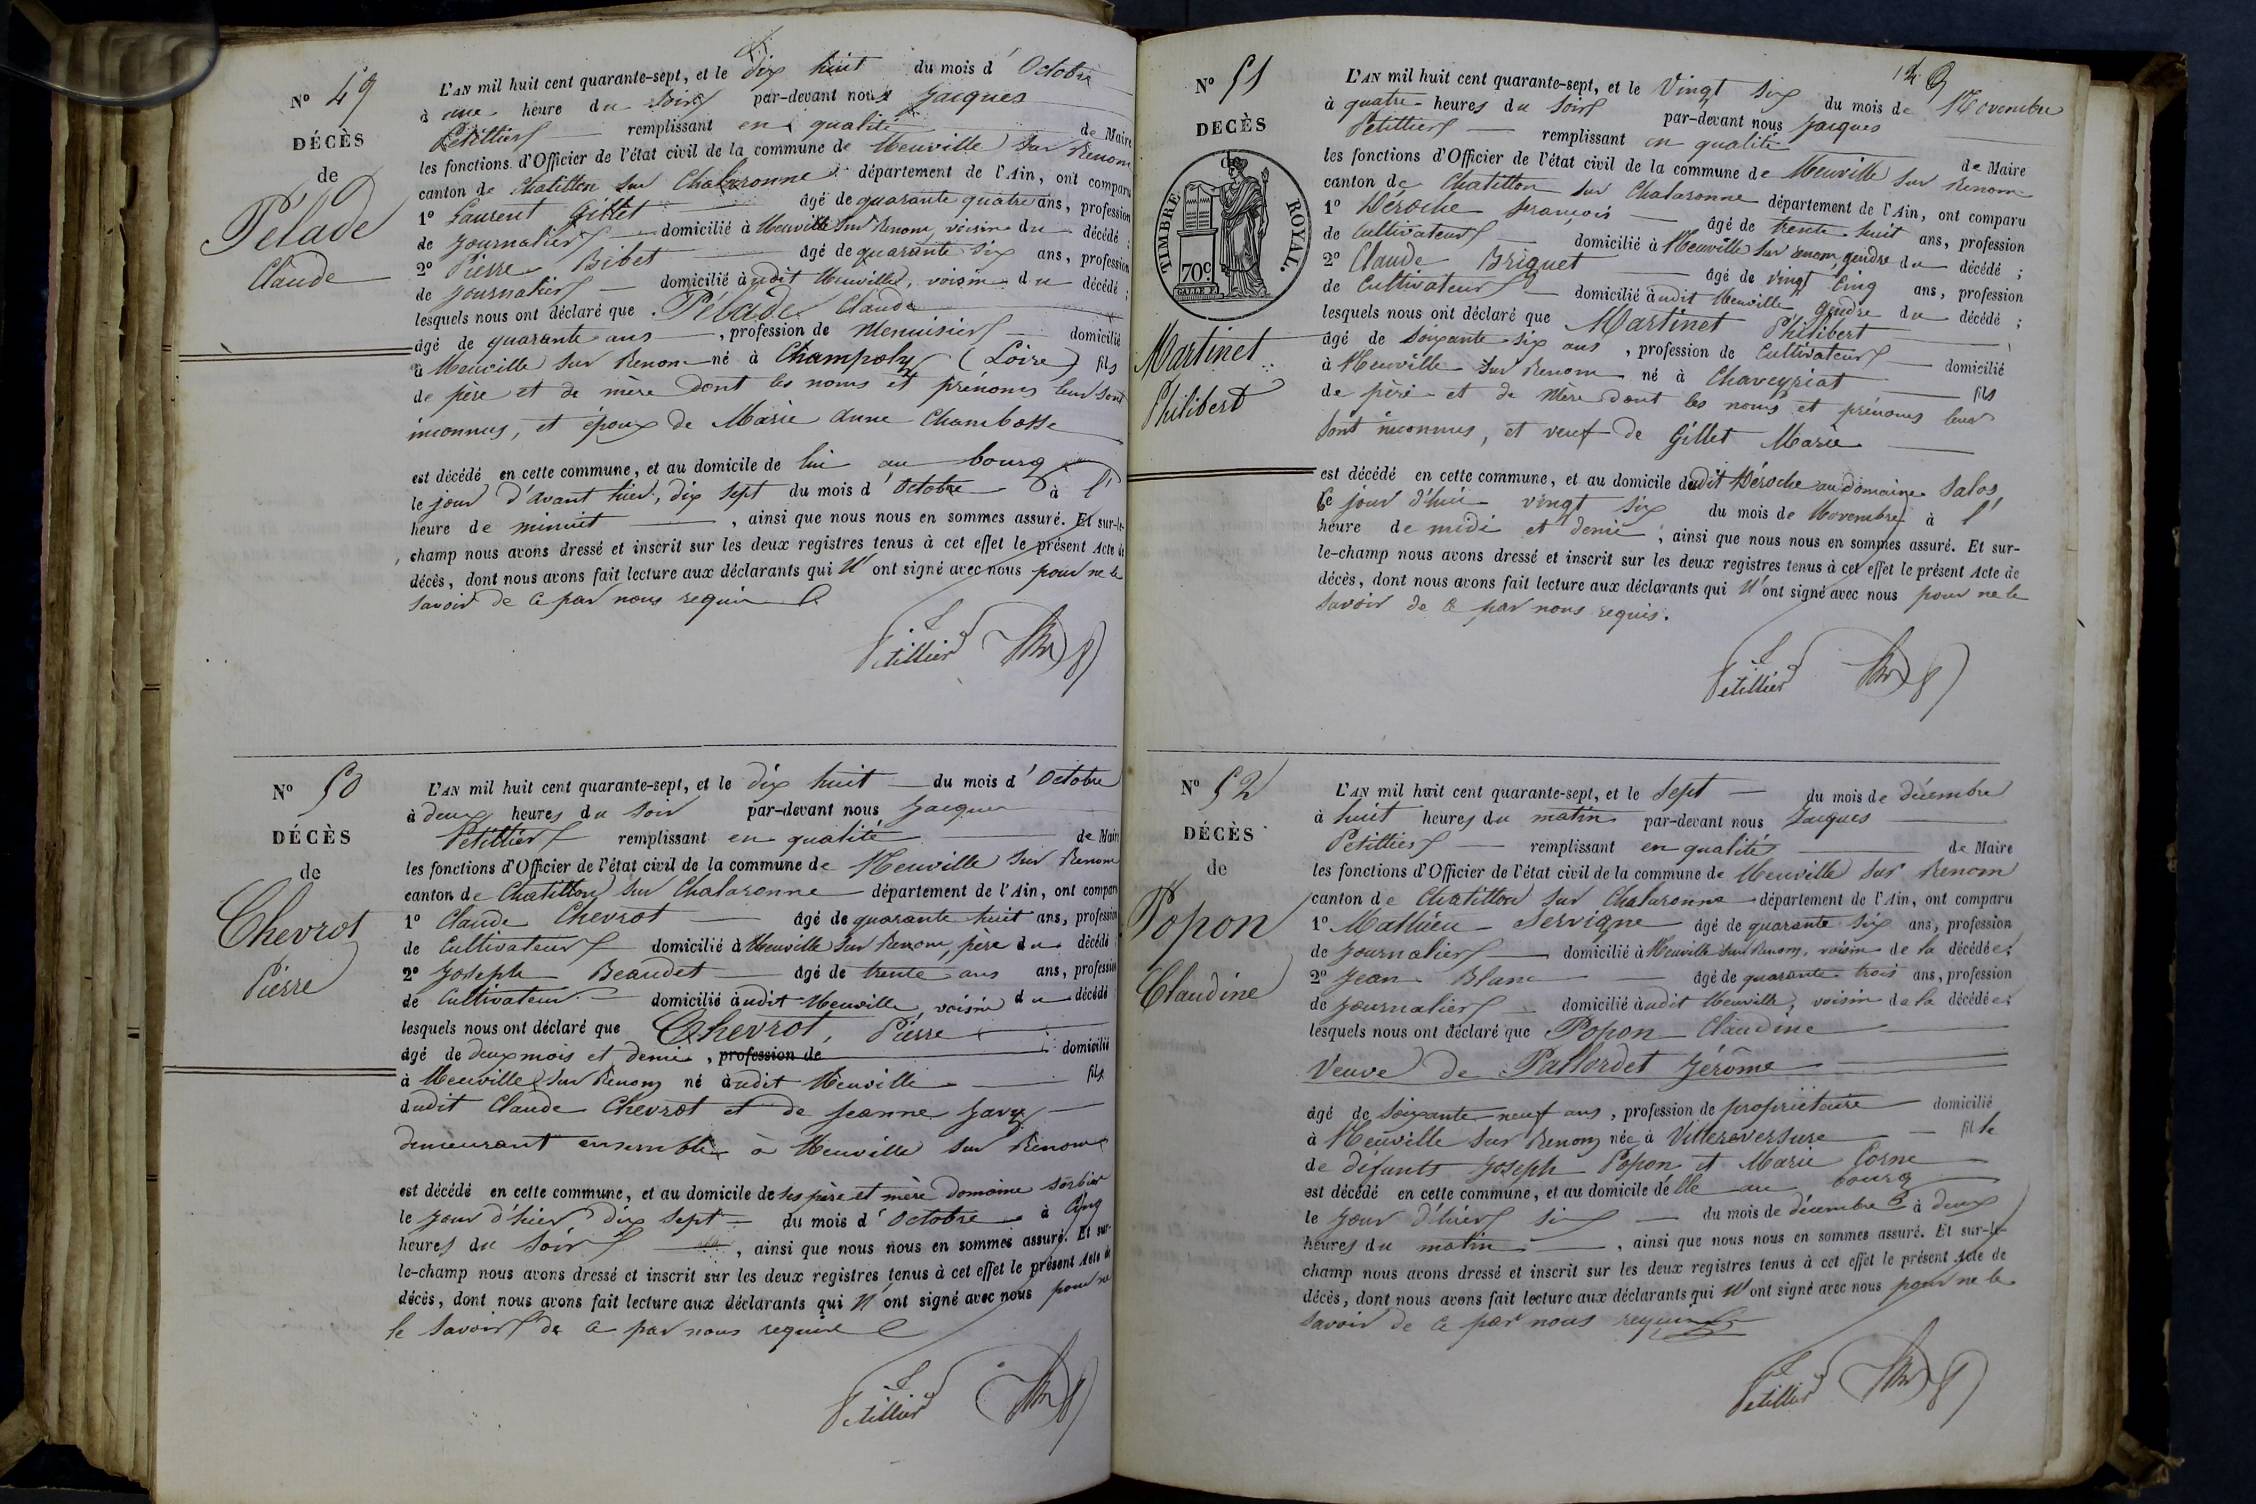 N° 49
DÉCÈS
de
Pélade
Claude
L'AN mil huit cent quarante-sept, et le dix huit du mois d'Octobre
à une heure du soir par-devant nous Jacques
Petillier remplissant en qualité de Maire
les fonctions d'Officier de l'état civil de la commune de Neuville sur Renom
canton de Chatillon sur Chalaronne département de l'Ain, ont comparu
1° Laurent Gillet âgé de quarante quatre ans, profession
de Journalier domicilié à Neuville sur Renom, voisin du décédé ;
2° Pierre Bibet âgé de quarante six ans, profession
de Journalier domicilié àudit Neuville, voisin du décédé ;
lesquels nous ont déclaré que Pélade Claude
âgé de quarante ans, profession de Menuisier domicilié
à Neuville sur Renom né à Champoly (Loire) fils
de père et de mère dont les noms et prénoms leur sont
inconnus, et époux de Marie Anne Chambosse
est décédé en cette commune, et au domicile de lui au bourg
le jour d'avant hier, dix sept du mois d'Octobre à l'
heure de minuit, ainsi que nous nous en sommes assuré. Et sur-le-
champ nous avons dressé et inscrit sur les deux registres tenus à cet effet le présent Acte de
décès, dont nous avons fait lecture aux déclarants qui N'ont signé avec nous pour ne le
savoir de ce par nous requis
Petillier
N° 50
DÉCÈS
de
Chevrot
Pierre
L'AN mil huit cent quarante-sept, et le dix huit du mois d'Octobre
à deux heures du soir par-devant nous Jacques
Petillier remplissant en qualité de Maire
les fonctions d'Officier de l'état civil de la commune de Neuville sur Renom
canton de Chatillon sur Chalaronne département de l'Ain, ont comparu
1° Claude Chevrot âgé de quarante huit ans, profession
de Cultivateur domicilié à Neuville sur Renom, père du décédé
2° Joseph Beaudet âgé de trente ans ans, profession
de Cultivateur domicilié àudit Neuville, voisin du décédé
lesquels nous ont déclaré que Chevrot, Pierre
âgé de deux mois et demi, profession de domicilié
à Neuville sur Renom né àudit Neuville fils
dudit Claude Chevrot et de Jeanne Javy
demeurant ensemble à Neuville sur Renom
est décédé en cette commune, et au domicile de ses père et mère domaine sorbier
le jour d'hier dix sept du mois d'Octobre à Cinq
heures du soir, ainsi que nous nous en sommes assuré. Et sur-
le-champ nous avons dressé et inscrit sur les deux registres tenus à cet effet le présent Acte de
décès, dont nous avons fait lecture aux déclarants qui N'ont signé avec nous pour ne
le savoir de ce par nous requis
Petillier
N° 51
DECÈS
de
TIMBRE ROYAL.
70c
Martinet
Philibert
L'AN mil huit cent quarante-sept, et le Vingt six du mois de Novembre
à quatre heures du soir par-devant nous Jacques
Petillier remplissant en qualité de Maire
les fonctions d'Officier de l'état civil de la commune de Neuville sur Renom
canton de Chatillon sur Chalaronne département de l'Ain, ont comparu
1° Déroche françois âgé de trente huit ans, profession
de Cultivateur domicilié à Neuville sur renom, gendre du décédé ;
2° Claude Briquet âgé de vingt Cinq ans, profession
de Cultivateur domicilié àudit Neuville gendre du décédé ;
lesquels nous ont déclaré que Martinet Philibert
âgé de soixante six ans, profession de Cultivateur domicilié
à Neuville sur Renom né à Chaveyriat fils
de père et de mère dont les noms et prénoms leur
sont inconnus, et veuf de Gillet Marie
est décédé en cette commune, et au domicile dudit Déroche au domaine Salos,
le jour d'hui vingt six du mois de Novembre à l'
heure de midi et demie ; ainsi que nous nous en sommes assuré. Et sur-
le-champ nous avons dressé et inscrit sur les deux registres tenus à cet effet le présent Acte de
décès, dont nous avons fait lecture aux déclarants qui N'ont signé avec nous pour ne le
savoir de ce par nous requis.
Petillier
N° 52
DÉCÈS
de
Popon
Claudine
L'AN mil huit cent quarante-sept, et le sept du mois de décembre
à huit heures du matin par-devant nous Jacques
Petillier remplissant en qualité de Maire
les fonctions d'Officier de l'état civil de la commune de Neuville sur Renom
canton de Chatillon sur Chalaronne département de l'Ain, ont comparu
1° Mathieu Servigne âgé de quarante six ans, profession
de Journalier domicilié à Neuville sur Renom, voisin de la décédée ;
2° Jean Blanc âgé de quarante trois ans, profession
de Journalier domicilié àudit Neuville, voisin de la décédée ;
lesquels nous ont déclaré que Popon Claudine
Veuve de Pallordet Jérôme
âgé de soixante neuf ans, profession de propriétaire domicilié
à Neuville sur Renom née à Villereversure fille
de défunts Joseph Popon et Marie Corne
est décédé en cette commune, et au domicile d'elle au bourg
le jour d'hier six du mois de décembre à deux
heures du matin, ainsi que nous nous en sommes assuré. Et sur-le-
champ nous avons dressé et inscrit sur les deux registres tenus à cet effet le présent Acte de
décès, dont nous avons fait lecture aux déclarants qui N'ont signé avec nous pour ne le
savoir de ce par nous requis
Petillier